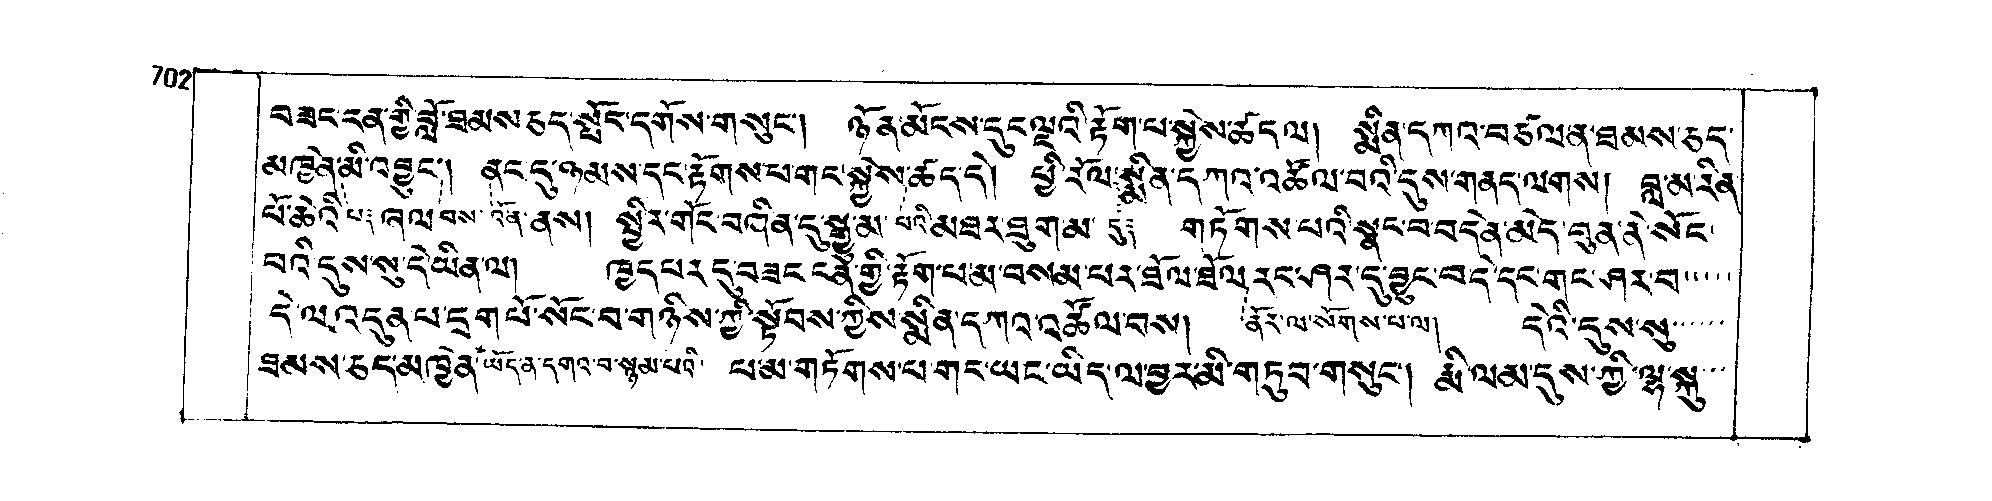 702
བཟང་ངན་གྱི་བློ་ཐམས་ཅད་སྤོང་དགོས་གསུང་། ཉོན་མོངས་དུང་ལྔའི་རྟོག་པ་སྐྱེས་ཚད་ལ། སྨིན་དཀའ་བཙལན་ཐམས་ཅད་
མཁྱེན་མི་འབྱུང་། ནང་དུ་ཉམས་དང་རྟོགས་པ་གང་སྐྱེས་ཚད་དེ། ཕྱི་རོལ་སྨིན་དཀའ་འཚོལ་བའི་དུས་གནད་ལགས། བླ་མ་རིན་
པོ་ཆེའི་ ཞལ་བས་ འོན་ནས། སྤྱིར་གོང་བཞིན་དུ་སྒྱུ་མ་ པའི་མཐར་ཐུགམ་ གཏོགས་པའི་སྣང་བ་བདེན་མེད་བུན་ནེ་སོང་
བའི་དུས་སུ་དེ་ཡིན་ལ། ཁྱད་པར་དུ་བཟང་ངན་གྱི་རྟོག་པ་མ་བསམ་པར་ཐོལ་ཐོལ་རང་ཤར་དུ་བྱུང་བ་དེ་དང་གང་ཤར་བ་
དེ་ལ་འདུན་པ་དྲག་པོ་སོང་བ་གཉིས་ཀྱི་སྟོབས་ཀྱིས་སྨིན་དཀའ་འཚོལ་བས། ནོར་ལ་སོགས་པ་ལ། དེའི་དུས་སུ་
ཐམས་ཅད་མཁྱེན་ ཡོད་ན་དགའ་བ་སྙམ་པའི་ པ་མ་གཏོགས་པ་གང་ཡང་ཡིད་ལ་བྱར་མི་གཏུབ་གསུང་། རྨི་ལམ་དུས་ཀྱི་ལྷ་སྐུ་